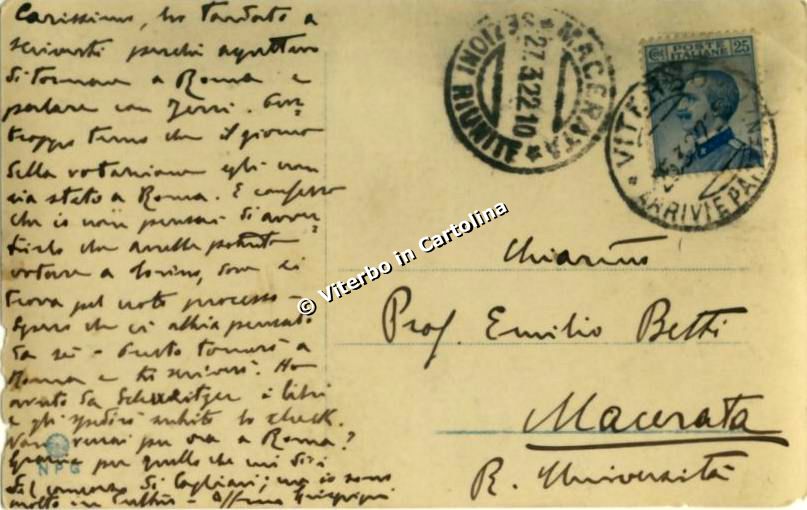 Carissimo, ho tardato a
scriverti perché aspettavo
di tornare a Roma e
parlare con Zerri. Pur-
troppo temo che il giorno
della votazione egli non
sia stato a Roma. E confesso
che io non pensai di avver-
tirlo che avrebbe potuto
votare a Torino, dove si
trova pel noto processo -
Spero che ci abbia pensato
da sé - Presto tornerò a
Roma e ti scriverò. Ho
avuto da Schweitzer i libri
e gli spedirò subito lo check.
Non verrai per ora a Roma?
Grazie per quello che mi dici
del concorso di Cagliari; ma io sono
molto in dubbio - Aff.mo
NPG
MACERATA
SEZIONI RIUNITE
27.3.22.10
VITERBO
ARRIVI E PARTENZE
POSTE ITALIANE
25
Chiar.mo
Prof. Emilio Betti
Macerata
R. Università
© Viterbo in Cartolina